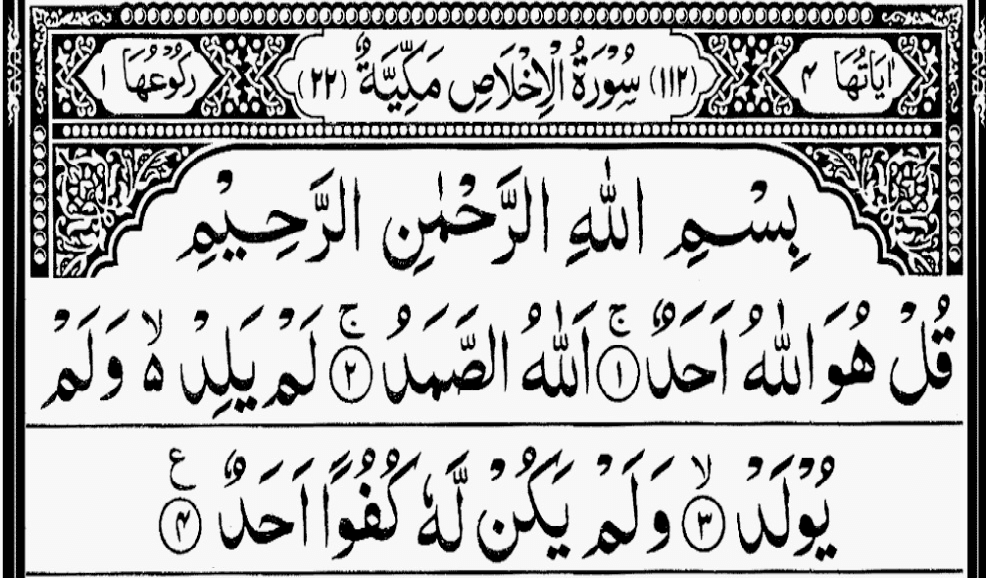 اٰيَاتُهَا ۴ (۱۱۲) سُوْرَةُ الْاِخْلَاصِ مَكِّيَّةٌ (۲۲) رُكُوْعُهَا ۱
بِسْمِ اللّٰهِ الرَّحْمٰنِ الرَّحِيْمِ
قُلْ هُوَ اللّٰهُ اَحَدٌ ۚ ﴿۱﴾ اَللّٰهُ الصَّمَدُ ۚ ﴿۲﴾ لَمْ يَلِدْ ۙ۵ وَلَمْ
يُوْلَدْ ۙ ﴿۳﴾ وَلَمْ يَكُنْ لَّهٗ كُفُوًا اَحَدٌ ﴿۴﴾ ع